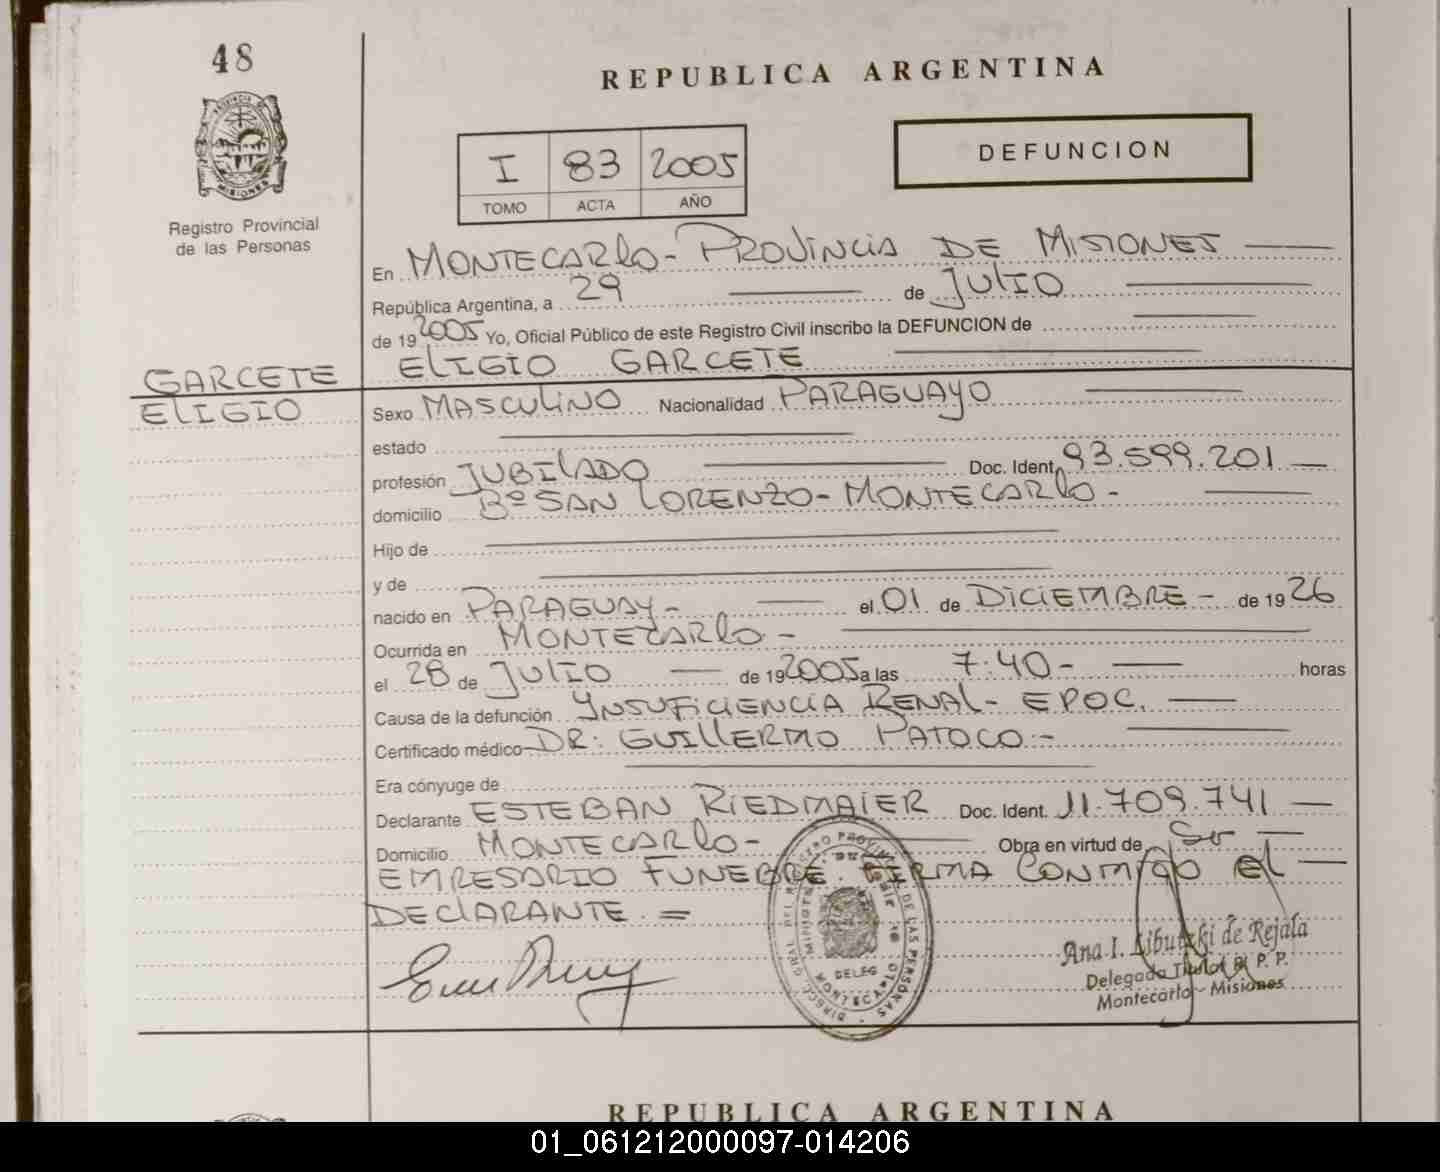 48
REPUBLICA ARGENTINA
I 83 2005
TOMO ACTA AÑO
DEFUNCION
PROVINCIA DE
MISIONES
Registro Provincial
de las Personas
En MONTECARLO - PROVINCIA DE MISIONES
República Argentina, a 29 de JULIO
de 19 2005 Yo, Oficial Público de este Registro Civil inscribo la DEFUNCION de
GARCETE ELIGIO GARCETE
ELIGIO Sexo MASCULINO Nacionalidad PARAGUAYO
estado
profesión JUBILADO Doc. Ident. 93.599.201
domicilio Bº SAN LORENZO - MONTECARLO -
Hijo de
y de
nacido en PARAGUAY - el 01 de DICIEMBRE - de 19 26
Ocurrida en MONTECARLO -
el 28 de JULIO de 19 2005 a las 7:40 - horas
Causa de la defunción YNSUFICIENCIA RENAL - EPOC.
Certificado médico DR: GUILLERMO PATOCO -
Era cónyuge de
Declarante ESTEBAN RIEDMAIER Doc. Ident. 11.709.741
Domicilio MONTECARLO - Obra en virtud de Ser
EMPRESARIO FUNEBRE. FIRMA CONMIGO el
DECLARANTE. =
Ana I. Libutzki de Rejala
Delegada Titular R. P. P.
Montecarlo - Misiones
REPUBLICA ARGENTINA
01_061212000097-014206